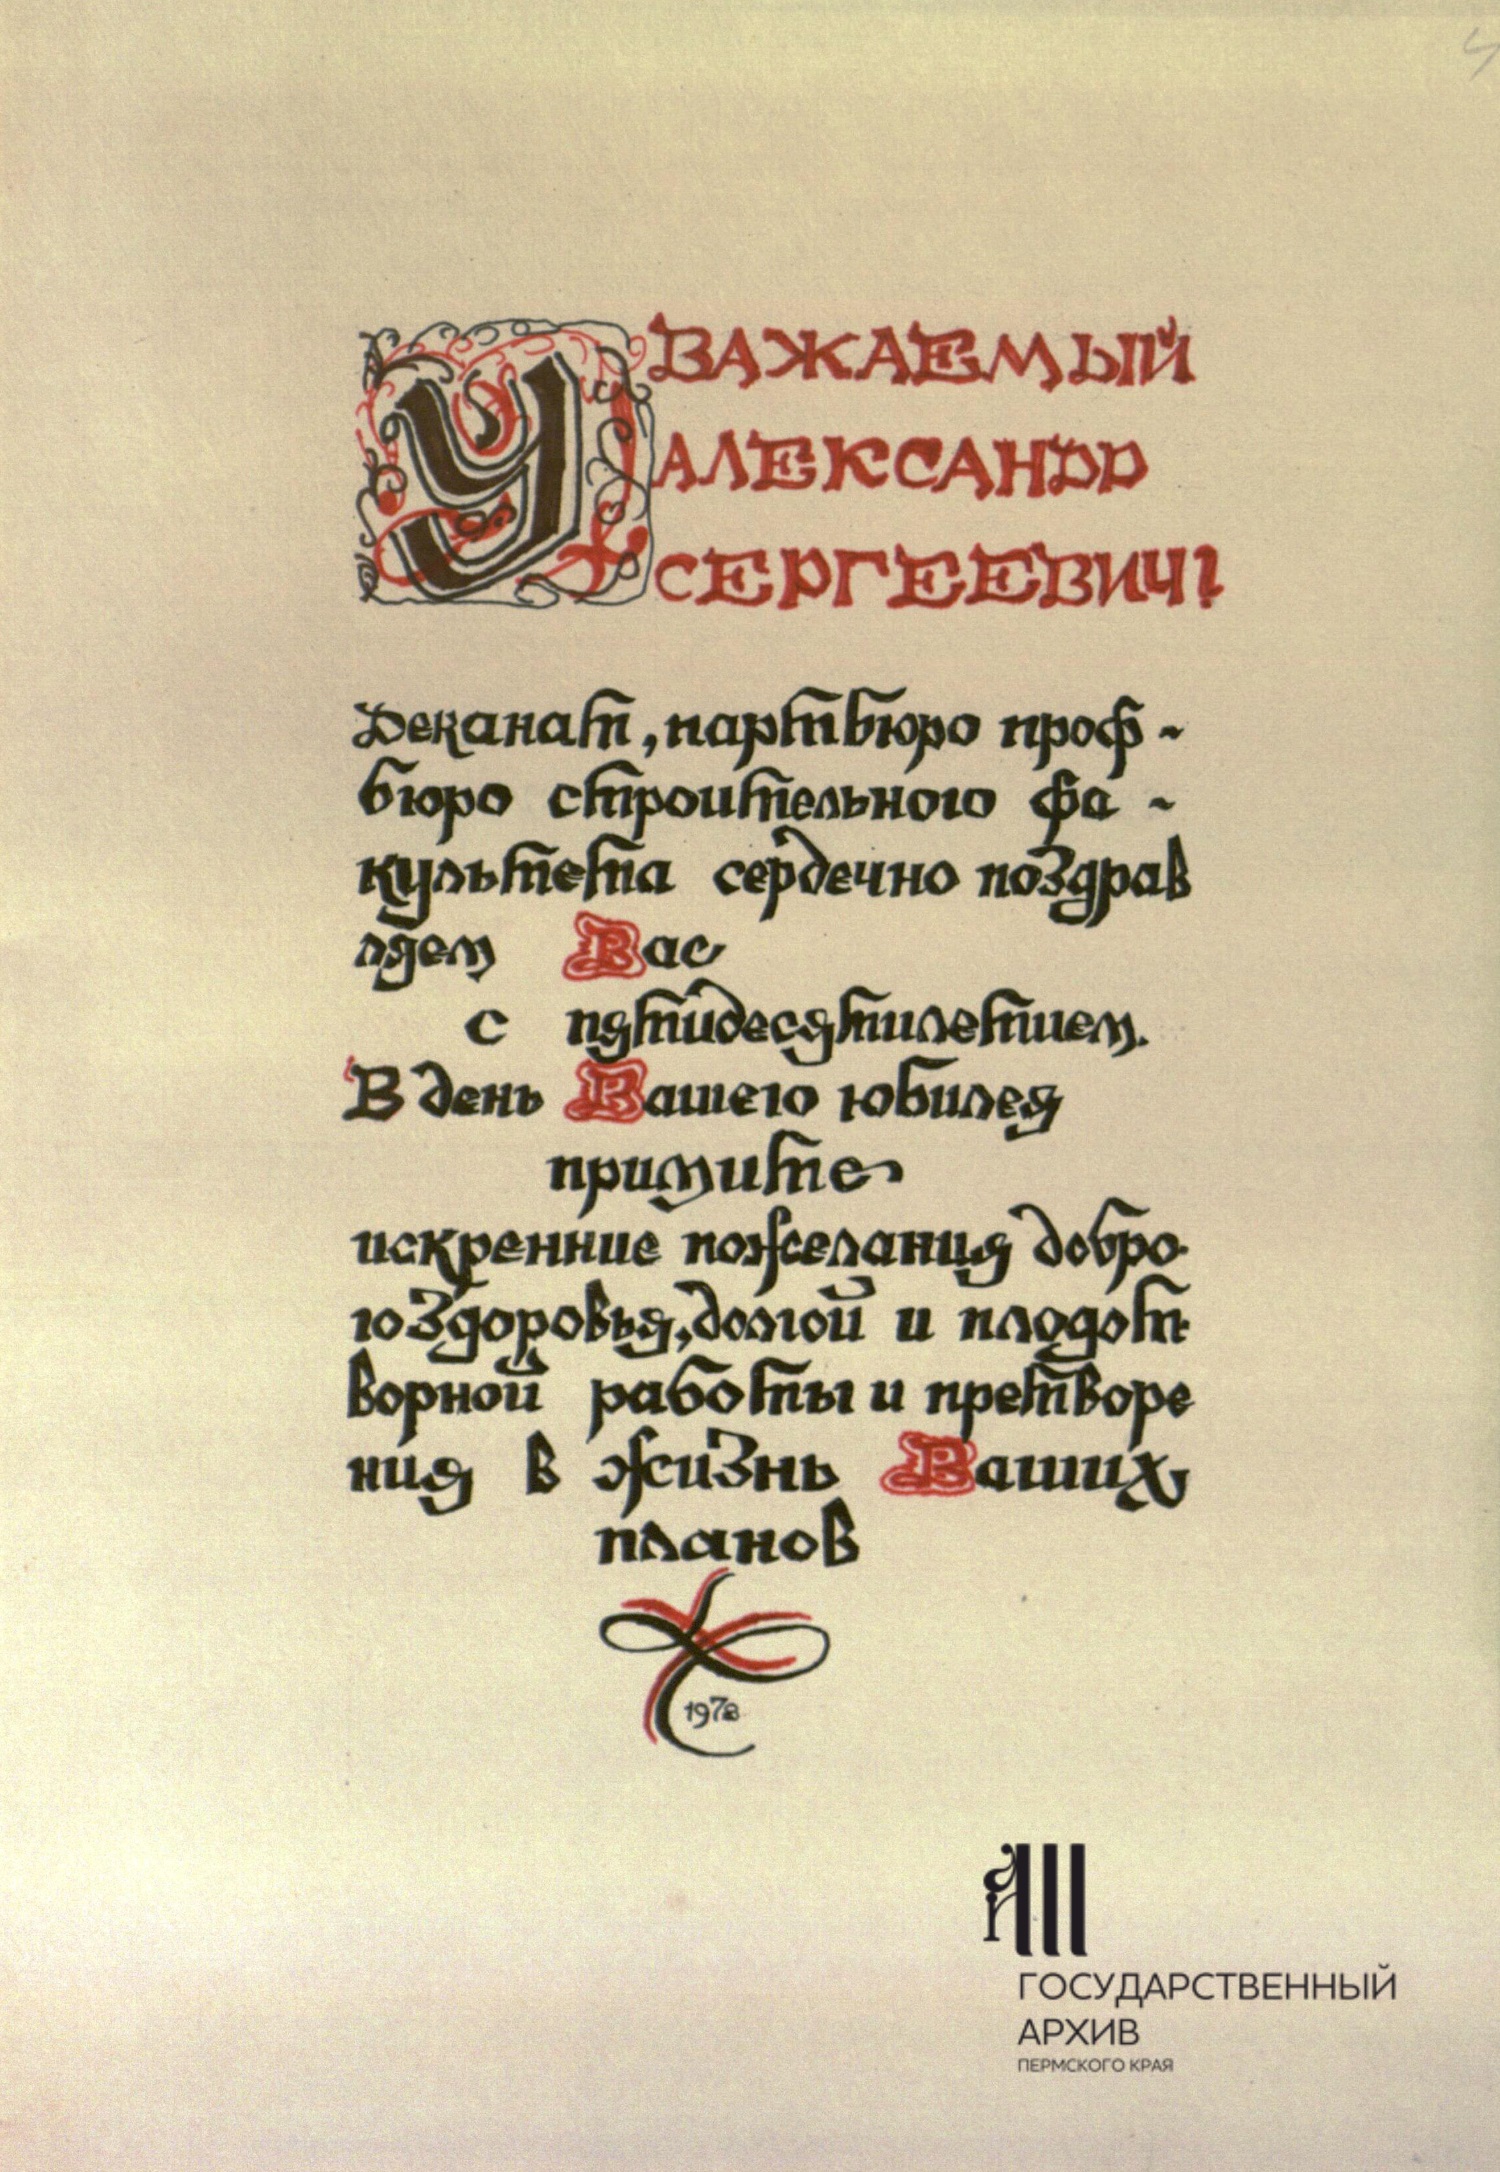 УВАЖАЕМЫЙ
АЛЕКСАНДР
СЕРГЕЕВИЧ!
Деканат, партбюро проф-
бюро строительного фа-
культета сердечно поздрав
ляем Вас
с пятидесятилетием.
В день Вашего юбилея
примите
искренние пожелания добро-
го здоровья, долгой и плодот-
ворной работы и претворе
ния в жизнь Ваших
планов
1978
ГОСУДАРСТВЕННЫЙ
АРХИВ
ПЕРМСКОГО КРАЯ